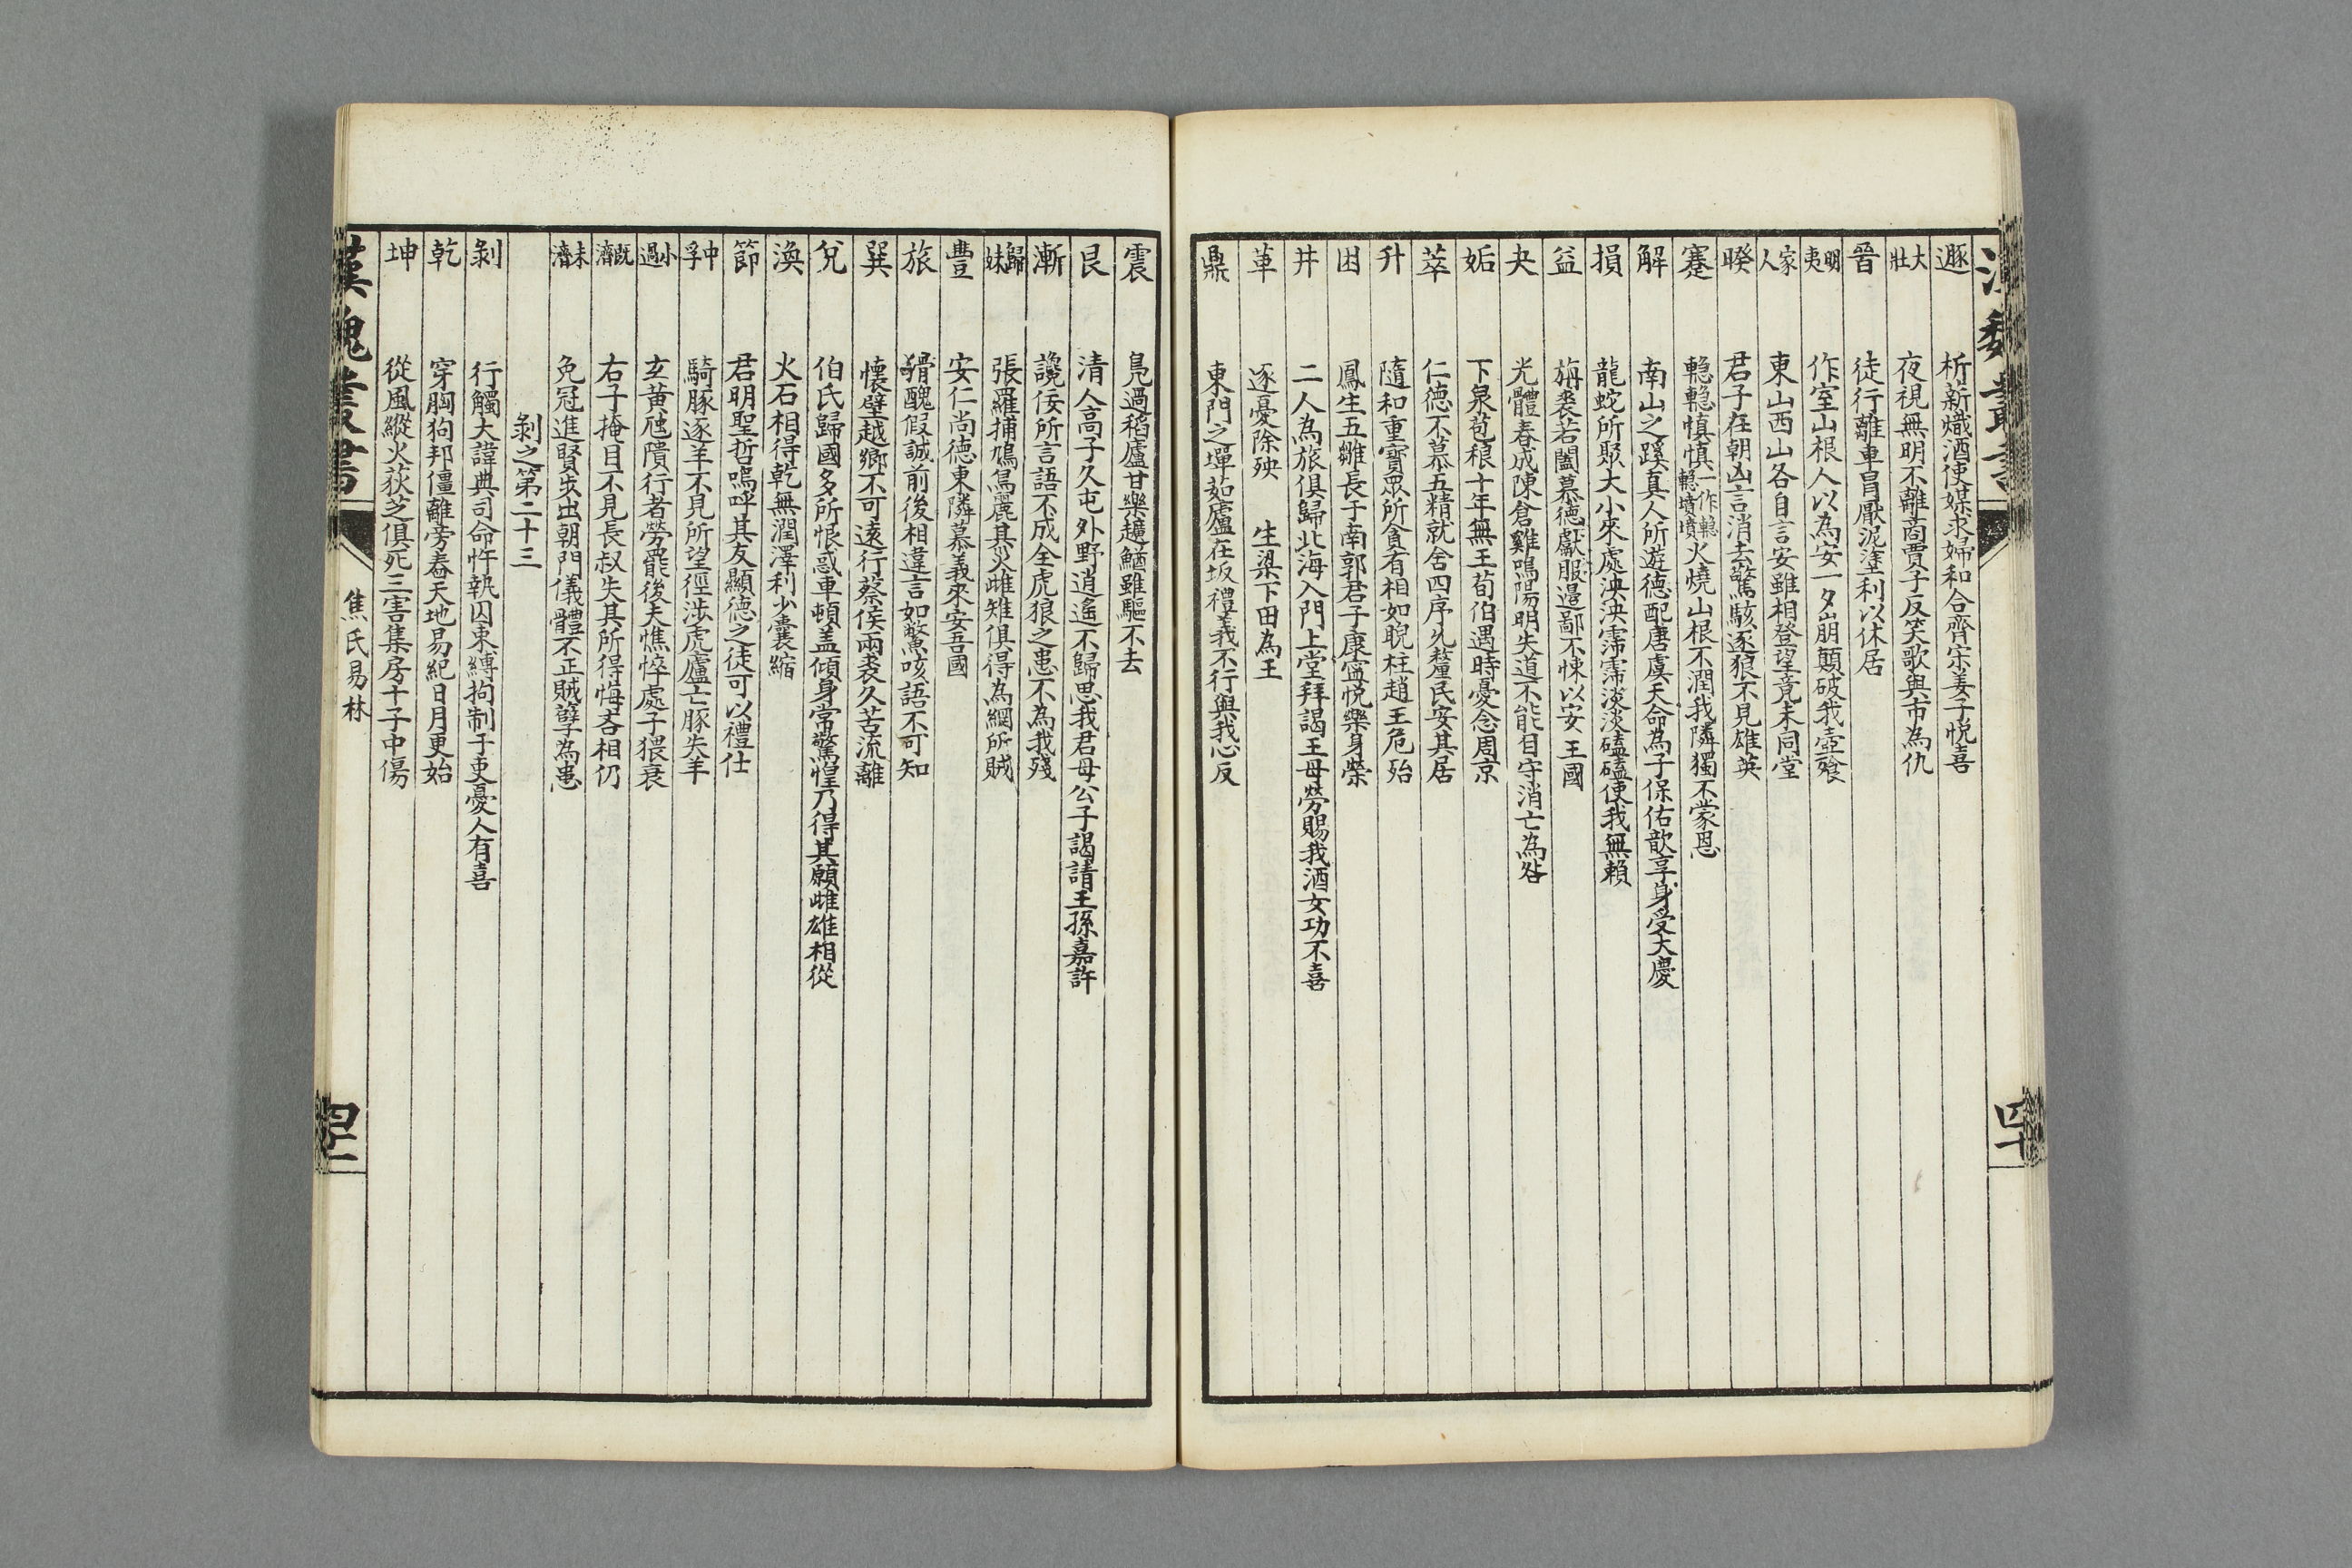 遯 析薪熾酒使媒求婦和合齊宋姜子悦喜
大壯 夜視無明不離商賈子反笑歌與市為仇
晉 徒行離車冒厭泥塗利以休居
明夷 作室山根人以為安一夕崩顛破我壺飱
家人 東山西山各自言安雖相登望竟未同堂
暌 君子在朝凶言消去驚駭逐狼不見雄英
蹇 轀轀慎慎一作轀轀墳墳火燒山根不潤我隣獨不蒙恩
解 南山之蹊真人所遊德配唐虞天命為子保佑歆享身受大慶
損 龍蛇所聚大小來處泱泱霈霈淡淡磕磕使我無賴
益 旃裘若闔慕德獻服邉鄙不悚以安王國
夬 光體春成陳倉雞鳴陽明失道不能自守消亡為咎
姤 下泉苞稂十年無王荀伯遇時憂念周京
萃 仁德不慕五精就舍四序允釐民安其居
升 隨和重寶眾所貪有相如睨柱趙王危殆
困 鳳生五雛長于南郭君子康寧悦樂身榮
井 二人為旅俱歸北海入門上堂拜謁王母勞賜我酒女功不喜
革 逐憂除殃 生梁下田為王
鼎 東門之墠茹廬在坂禮義不行與我心反
震 鳧過稻廬甘樂䵃鰌雖驅不去
艮 清人高子久屯外野逍遙不歸思我君母公子謁請王孫嘉許
漸 讒佞所言語不成全虎狼之患不為我殘
歸妹 張羅捕鳩鳥麗其災雌雉俱得為網所賊
豐 安仁尚德東隣慕義來安吾國
旅 猾醜假誠前後相違言如鱉咳語不可知
巽 懷璧越鄉不可遠行蔡侯兩裘久苦流離
兌 伯氏歸國多所恨惑車頓盖傾身常驚惶乃得其願雌雄相從
渙 火石相得乾無潤澤利少囊縮
節 君明聖哲嗚呼其友顯德之徒可以禮仕
中孚 騎豚逐羊不見所望徑涉虎廬亡豚失羊
小過 玄黄虺隤行者勞罷後夫憔悴處子猥衰
既濟 右子掩目不見長叔失其所得悔吝相仍
未濟 免冠進賢步出朝門儀體不正賊孽為患
剝之第二十三
剝 行觸大諱與司命忤執囚束縛拘制于吏憂人有喜
乾 穿胸狗邦僵離旁舂天地易紀日月更始
坤 從風縱火荻芝俱死三害集房十子中傷
漢魏叢書
焦氏易林